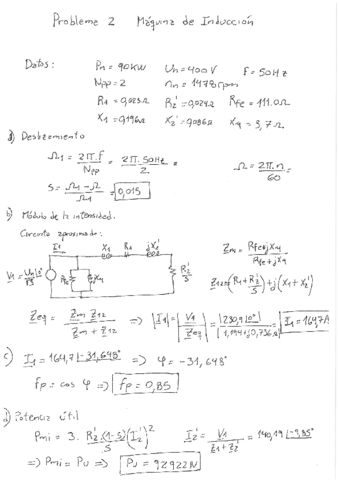 Problema 2 Máquina de Inducción
Datos: Pn = 90KW Un = 400V F = 50Hz
Npp = 2 nn = 1478rpm
R1 = 0,023Ω R2' = 0,024Ω RFe = 111.0Ω
X1 = 0,196Ω X2' = 0,086Ω Xμ = 3,7Ω
a) Deslizamiento
Ω1 = 2π.F / Npp = 2π.50Hz / 2 = Ω = 2π.n / 60 =
S = Ω1 - Ω / Ω1 = 0,015
b) Módulo de la intensidad.
Circuito aproximado:
I1 X1 R1 X2' Zm = RFe·jXμ / RFe+jXμ
V1 = Un/√3 |0° RFe jXμ R2'/S Z12=(R1+R2'/S)+j(X1+X2')
Zeq = Zm Z12 / Zm + Z12 => |I1| = |V1 / Zeq| = |230,9|0° / 1,194+j0,736| = I1 = 164,7A
c) I1 = 164,7|-31,648° => φ = -31,648°
fp = cos φ => fp = 0,85
d) Potencia útil
Pmi = 3. R2' (1-S)/S (I2')² I2' = V1 / Z1+Z2' = 140,19|-9,85°
=> Pmi = Pu => Pu = 92922W